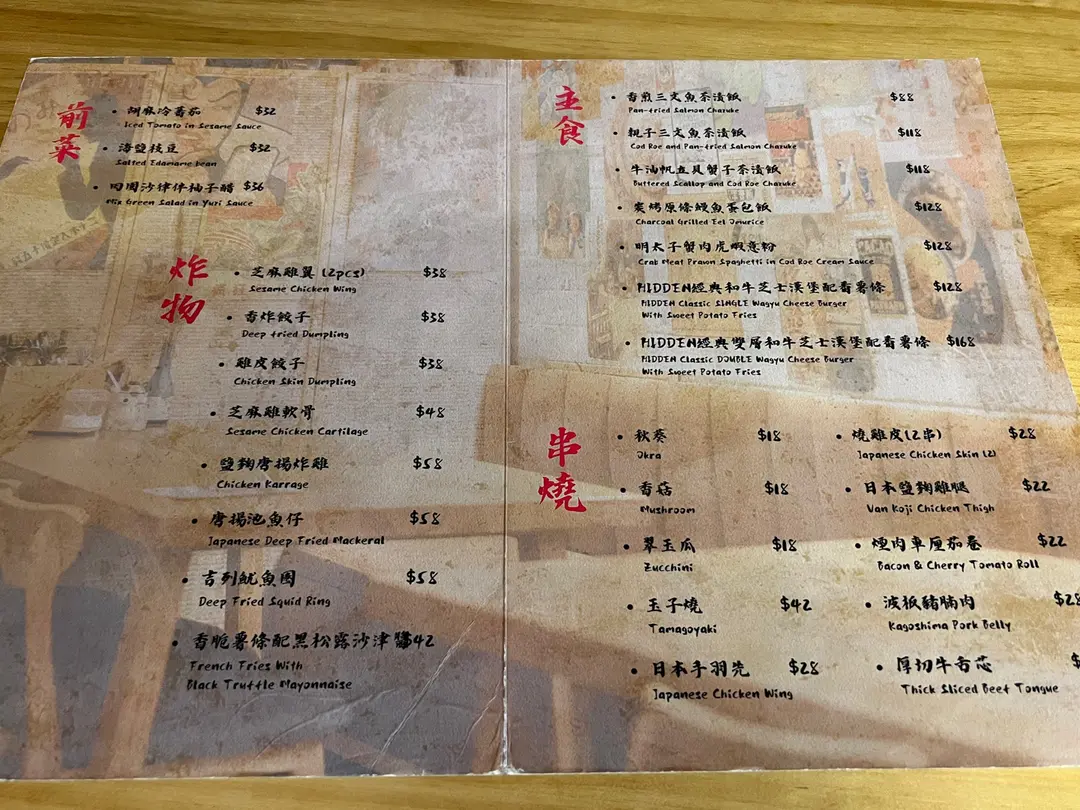 前菜
胡麻冷蕃茄 $32
Iced Tomato in Sesame Sauce
海鹽枝豆 $32
Salted Edamame bean
田園沙律伴柚子醋 $36
Mix Green Salad in Yuzi Sauce
炸物
芝麻雞翼 (2pcs) $38
Sesame Chicken Wing
香炸餃子 $38
Deep fried Dumpling
雞皮餃子 $38
Chicken Skin Dumpling
芝麻雞軟骨 $48
Sesame Chicken Cartilage
鹽麴唐揚炸雞 $58
Chicken Karrage
唐揚池魚仔 $58
Japanese Deep Fried Mackeral
吉列魷魚圈 $58
Deep Fried Squid Ring
香脆薯條配黑松露沙律醬 $42
French Fries With
Black Truffle Mayonnaise
主食
香煎三文魚茶漬飯 $88
Pan-fried Salmon Chazuke
親子三文魚茶漬飯 $118
Cod Roe and Pan-fried Salmon Chazuke
牛油帆立貝蟹子茶漬飯 $118
Buttered Scallop and Cod Roe Chazuke
炭烤原條鰻魚蛋包飯 $128
Charcoal Grilled Eel Omurice
明太子蟹肉虎蝦意粉 $128
Crab Meat Prawn Spaghetti in Cod Roe Cream Sauce
HIDDEN經典和牛芝士漢堡配番薯條 $128
HIDDEN Classic SINGLE Wagyu Cheese Burger
With Sweet Potato Fries
HIDDEN經典雙層和牛芝士漢堡配番薯條 $168
HIDDEN Classic DOUBLE Wagyu Cheese Burger
With Sweet Potato Fries
串燒
秋葵 $18
Okra
香菇 $18
Mushroom
翠玉瓜 $18
Zucchini
玉子燒 $42
Tamagoyaki
日本手羽先 $28
Japanese Chicken Wing
燒雞皮(2串) $28
Japanese Chicken Skin (2)
日本鹽麴雞腿 $22
Van Koji Chicken Thigh
煙肉車厘茄卷 $22
Bacon & Cherry Tomato Roll
波板豬腩肉 $28
Kagoshima Pork Belly
厚切牛舌芯 $
Thick Sliced Beef Tongue